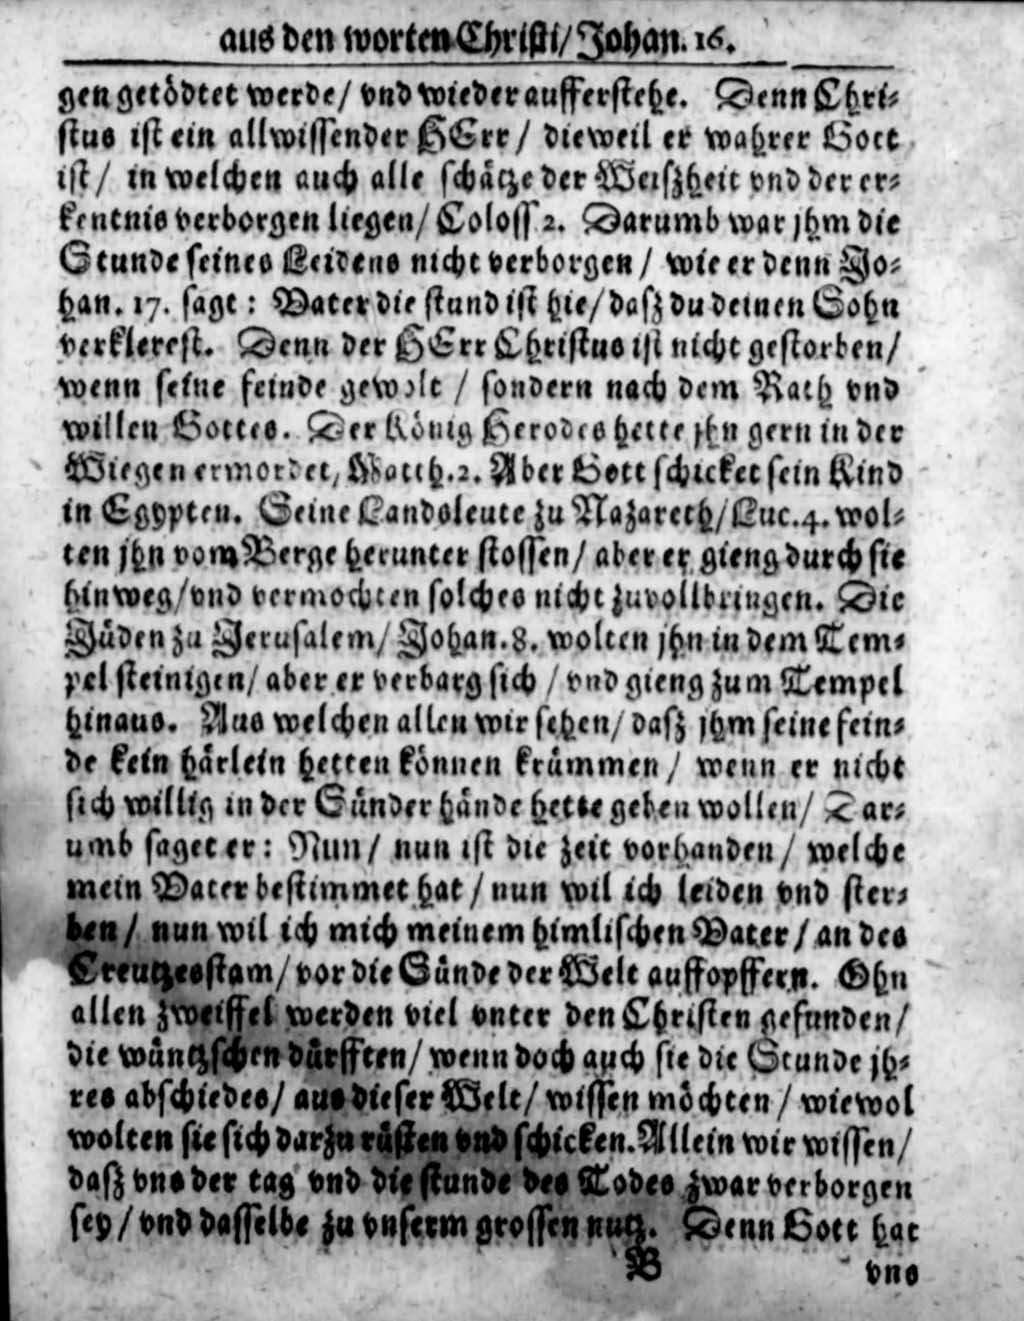 aus den worten Christi/ Johan. 16.
gen getödtet werde/ vnd wieder aufferstehe. Denn Chri-
stus ist ein allwissender HErr/ dieweil er wahrer Gott
ist/ in welchen auch alle schätze der Weißheit vnd der er-
kentnis verborgen liegen/ Coloss 2. Darumb war jhm die
Stunde seines Leidens nicht verborgen/ wie er denn Jo-
han. 17. sagt: Vater die stund ist hie/ daß du deinen Sohn
verklerest. Denn der HErr Christus ist nicht gestorben/
wenn seine feinde gewolt / sondern nach dem Rath vnd
willen Gottes. Der König Herodes hette jhn gern in der
Wiegen ermordet/ Matth. 2. Aber Gott schicket sein Kind
in Egypten. Seine Landsleute zu Nazareth/ Luc. 4. wol-
ten jhn vom Berge herunter stossen/ aber er gieng durch sie
hinweg/ vnd vermochten solches nicht zuvollbringen. Die
Jüden zu Jerusalem/ Johan. 8. wolten jhn in dem Tem-
pel steinigen/ aber er verbarg sich / vnd gieng zum Tempel
hinaus. Aus welchen allen wir sehen/ daß jhm seine fein-
de kein härlein hetten können krümmen / wenn er nicht
sich willig in der Sünder hände hette geben wollen/ Dar-
umb saget er: Nun/ nun ist die zeit vorhanden/ welche
mein Vater bestimmet hat / nun wil ich leiden vnd ster-
ben/ nun wil ich mich meinem himlischen Vater / an des
Creutzesstam/ vor die Sünde der Welt auffopffern. Ohn
allen zweiffel werden viel vnter den Christen gefunden/
die wüntzschen dürfften/ wenn doch auch sie die Stunde jh-
res abschiedes/ aus dieser Welt/ wissen möchten / wiewol
wolten sie sich darzu rüsten vnd schicken. Allein wir wissen/
daß vns der tag vnd die stunde des Todes zwar verborgen
sey/ vnd dasselbe zu vnserm grossen nutz. Denn Gott hat
B vns